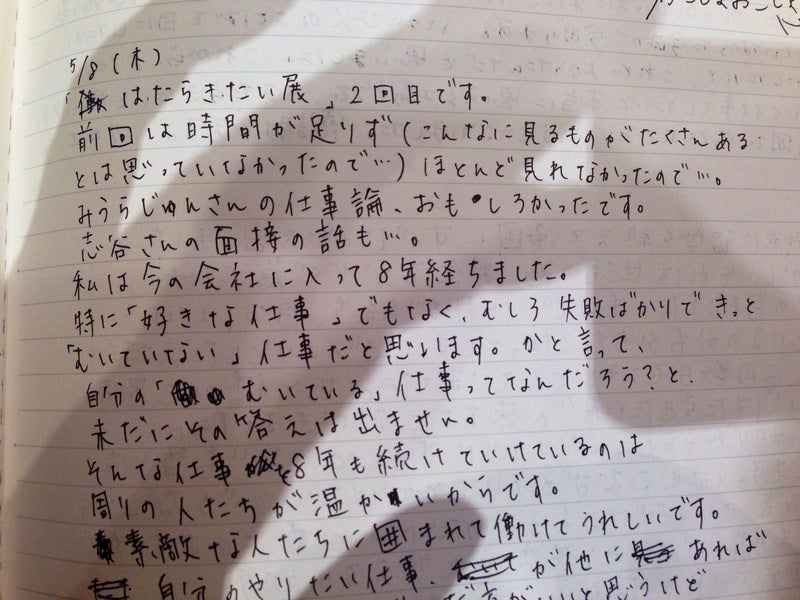 5/8(木)
「はたらきたい展」2回目です。
前回は時間が足りず(こんなに見るものがたくさんある
とは思っていなかったので…)ほとんど見れなかったので…。
みうらじゅんさんの仕事論、おもしろかったです。
志谷さんの面接の話も…。
私は今の会社に入って8年経ちました。
特に「好きな仕事」でもなく、むしろ失敗ばかりできっと
「むいていない」仕事だと思います。かと言って、
自分の「むいている」仕事ってなんだろう?と、
未だにその答えは出ません。
そんな仕事を8年も続けていけているのは
周りの人たちが温かいからです。
素敵な人たちに囲まれて働けてうれしいです。
自分のやりたい仕事、が他にあれば
方がいいと思うけど